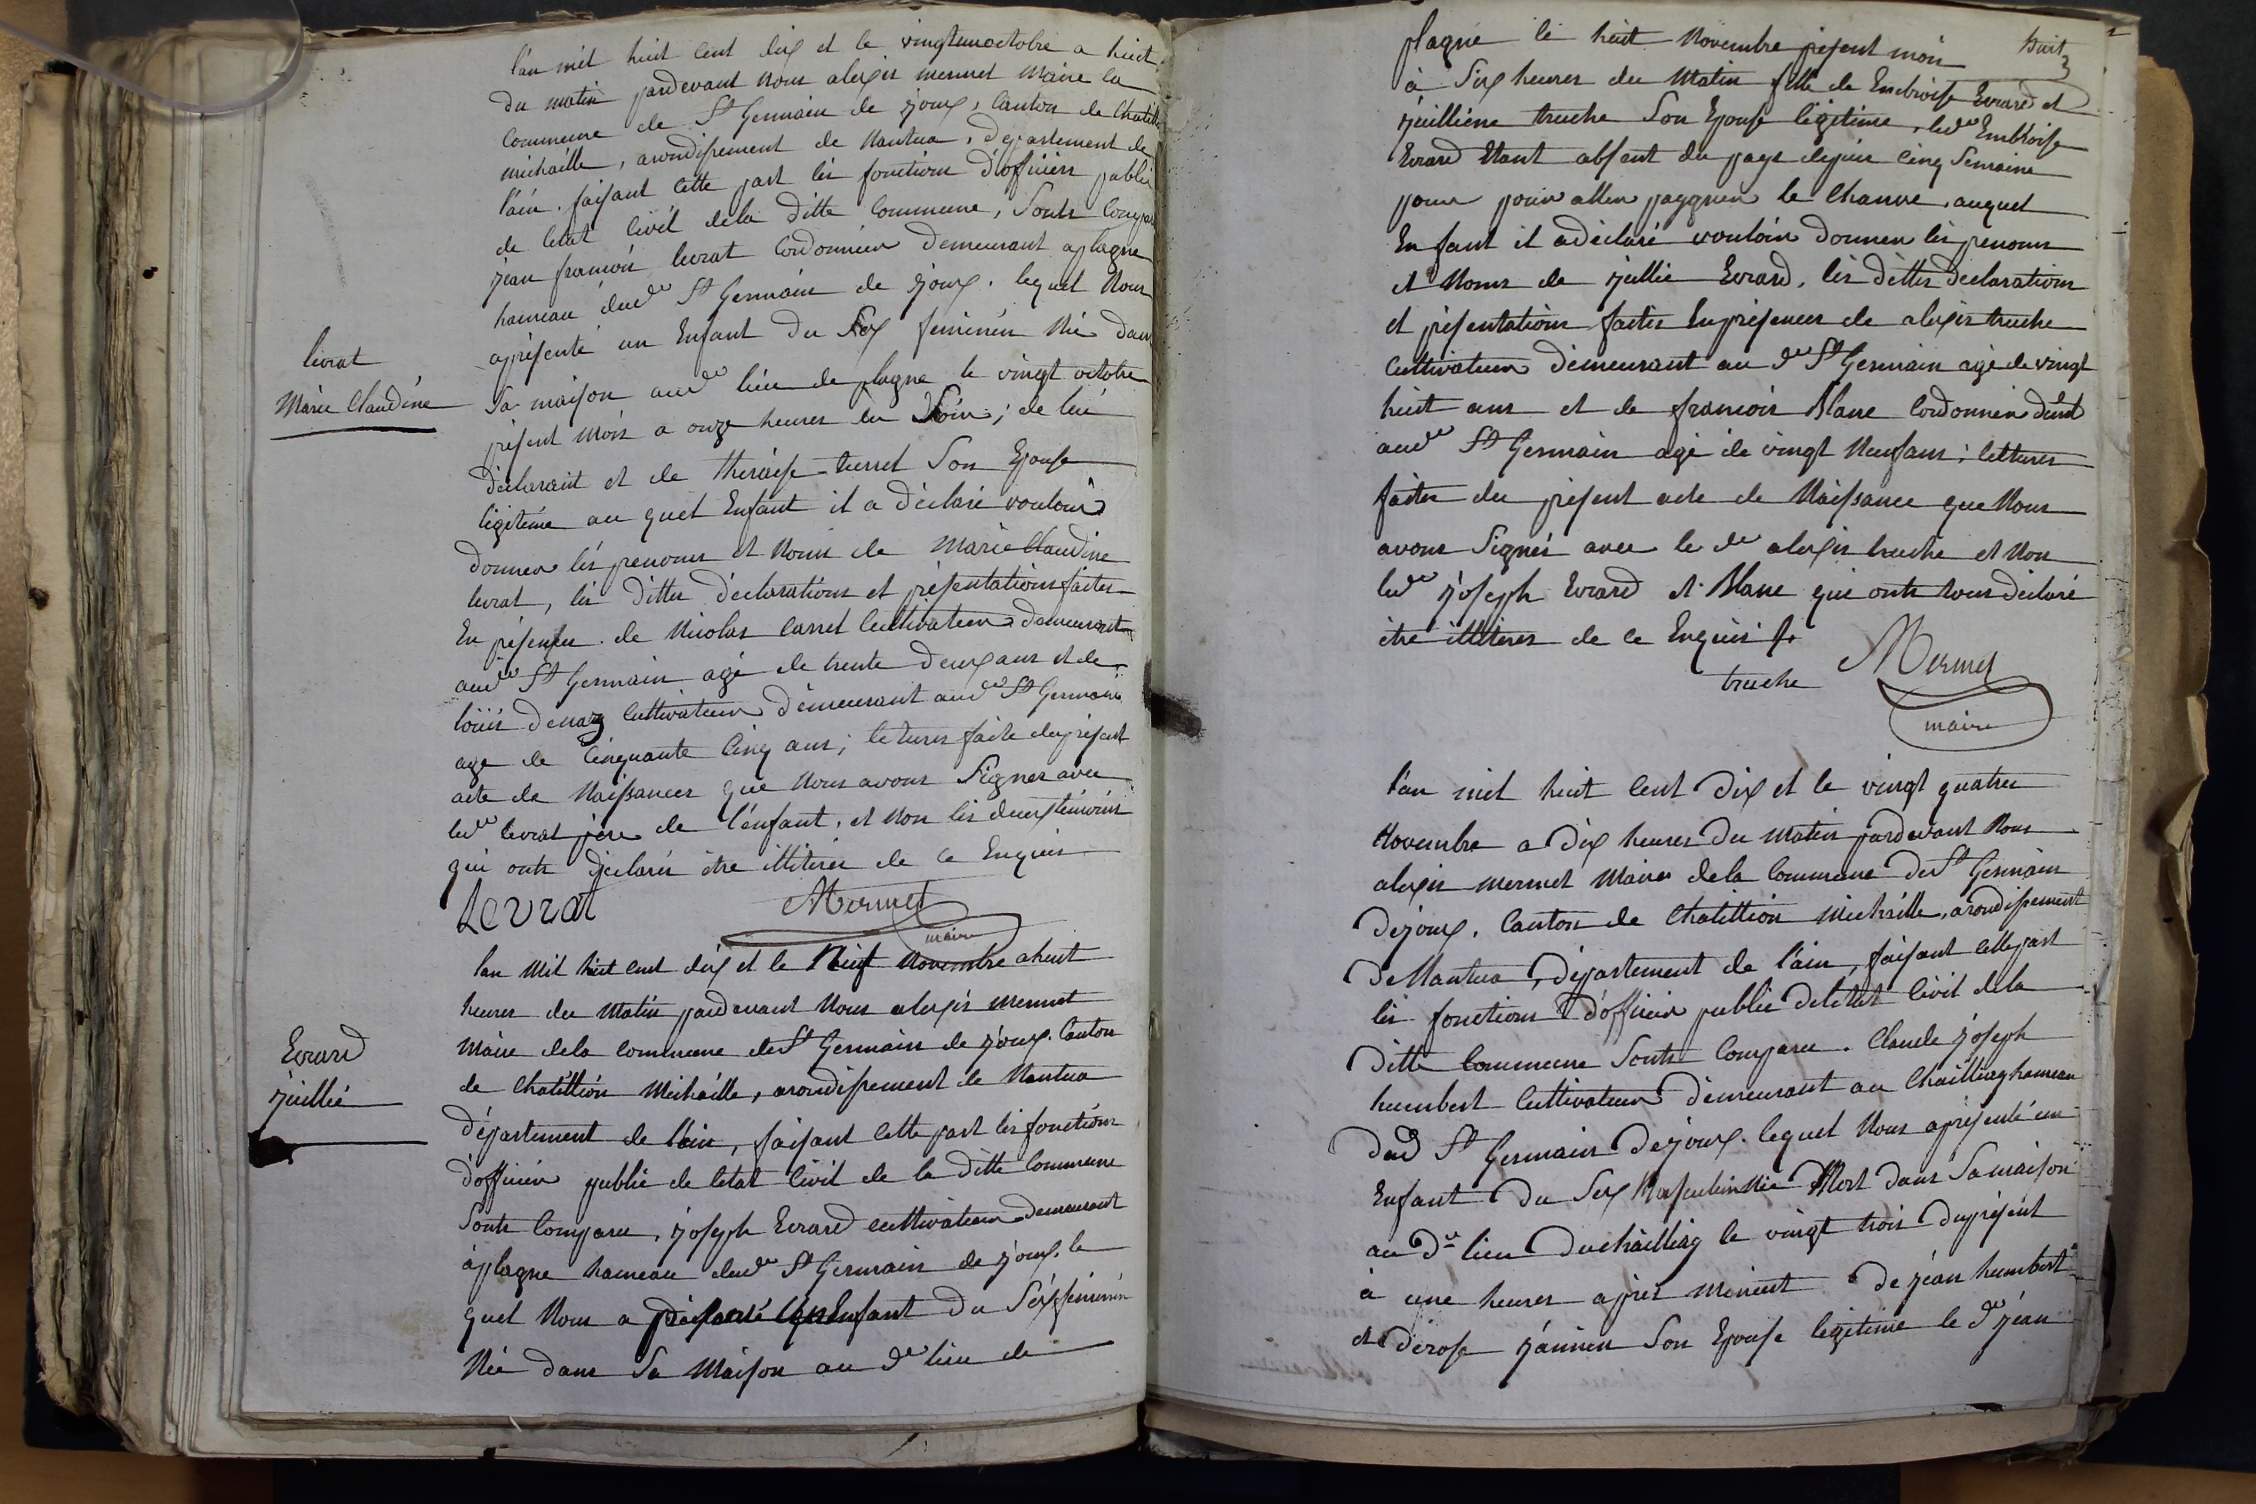 l'an mil huit cent dix et le vingtunoctobre a huit
du matin pardevant nous alexis mermet maire la
commune de St Germain de joux, canton de Chatill
michaille, arondissement de Nantua, departement de
l'ain. faisant cette part les fonctions d'officier public
de letat civil dela ditte commune, Sonts Compar
jean francois levrat cordonnier demeurant aplagne
hameau dudt St Germain de joux. lequel Nous
apresenté un Enfant du Sex feminin Né dans
livrat
Sa maison audt lieu de plagne le vingt octobre
Marie Claudine
présent mois a onze heures du Soir; de lui
déclarant et de theraise turrel Son Epouse
légitime au quel Enfant il a déclaré vouloir
donner lés prenoms et Noms de Marie Claudine
levrat, lés dittes déclarations et présentations faites
En présence de Nicolas carrel Cultivateur demeurant
audt St Germain agé de trente deux ans et de
louis cultivateur demeurant audt St Germain
age de Cinquante Cinq ans; letures faite du présent
acte de Naissances que Nous avons Signer avec
ledt levrat père de l'énfant, et Non lés deux témoins
qui onts déclarés être illitéres de ce Enquis
Levrat Mermet
maire
lan mil huit cent dix et le Neuf Novembre ahuit
heures du Matin pardevant Nous alexis mermet
Maire dela commune de St Germain de joux. Canton
Evrard
de Chatillion Michaille, arondissement de Nantua
juillie
département de l'ain, faisant cette part les fonctions
d'officier public de letat Civil de la ditte Commune
Sonts Comparu, joseph Evrard cultivateur demeurant
áplagne hameau dudt St Germain de joux. le
quel Nous a présenté un Enfant du Séx féminin
Né dans Sa Maison au dt lieu de
huit
plagne le huit Novembre présent mois
à Six heures du Matin fille de Embroise Evrard et
juilliène truche Son Epouse légitime, ledt Embroise
Evrard Etant absent du pays depuis Cinq Semaine
pour pour aller paggner le Chanvre, auquel
Enfant il adéclaré vouloir donner lés prenoms
et Noms de jullie Evrard, lés dittes declarations
et présentations faites Enprésences de alexis truche
Cultivateur demeurant au dt St Germain agé de vingt
huit ans et de francois Blanc Cordonnier
audt St Germain agé de vingt Neuf ans; lettures
faites du présent acte de Naissance que Nous
avons Signés avec le dt alexis truche et Non
ledt joseph Evrard et Blanc qui onts nous déclaré
étre illitéres de ce Enquis
truche Mermet
maire
l'an mil huit Cent Dix et le vingt quatre
Novembre a Dix heures Du Matin pardevant Nous
alexis mermet Maire dela Commune de St Germain
Dejoux. Canton de Chatillion Michaille, arondissement
De Nantua, Département de l'ain, faisant cette part
lés fonctions D'officier public deletat Civil dela
Ditte Commune Sonts Comparu. Claude joseph
humbert Cultivateur demeurant au hameau
Dud St Germain Dejoux. lequel Nous aprésenté un
Enfant Du Sex Masculin Né Mort dans Samaison
au Dt lieu le vingt trois Duprésént
à une heures aprés Minuit De jean humbert
et Dérose Son Epouse légitime le dt jean